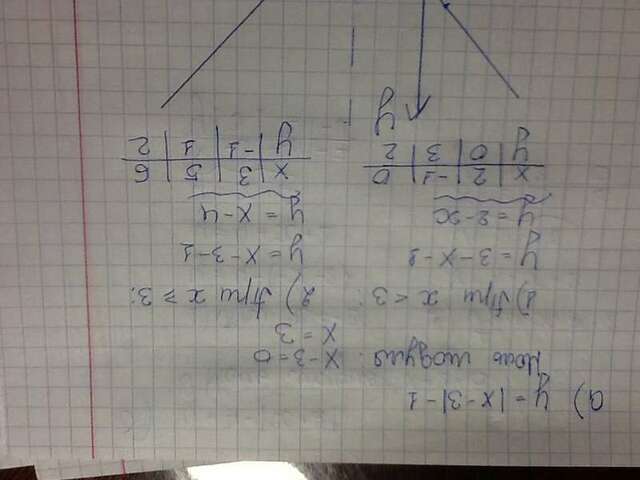 а) y = |x-3|-1
Ноль модуля: x-3=0
x = 3
1) При x < 3:
y = 3-x-1
y = 2-x
x 2 -1 0
y 0 3 2
2) При x ⩾ 3:
y = x-3-1
y = x-4
x 3 5 6
y -1 1 2
y